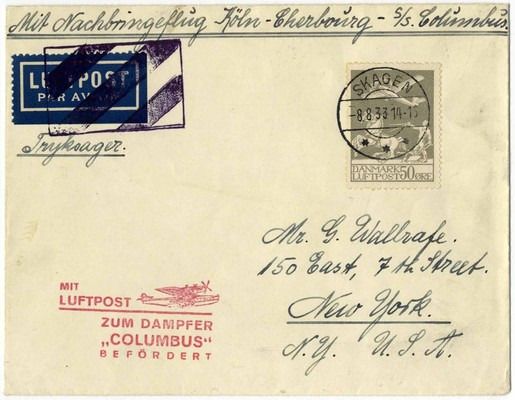 Mit Nachbringeflug Köln-Cherbourg - S/s. Columbus.
LUFTPOST
PAR AVION
Tryksager.
SKAGEN
-8.8.33 14-15
DANMARK
LUFTPOST 50 ØRE
Mr. G. Wallrafe.
150 East, 7th Street.
New York.
N.Y. U.S.A.
MIT
LUFTPOST
ZUM DAMPFER
„COLUMBUS"
BEFÖRDERT